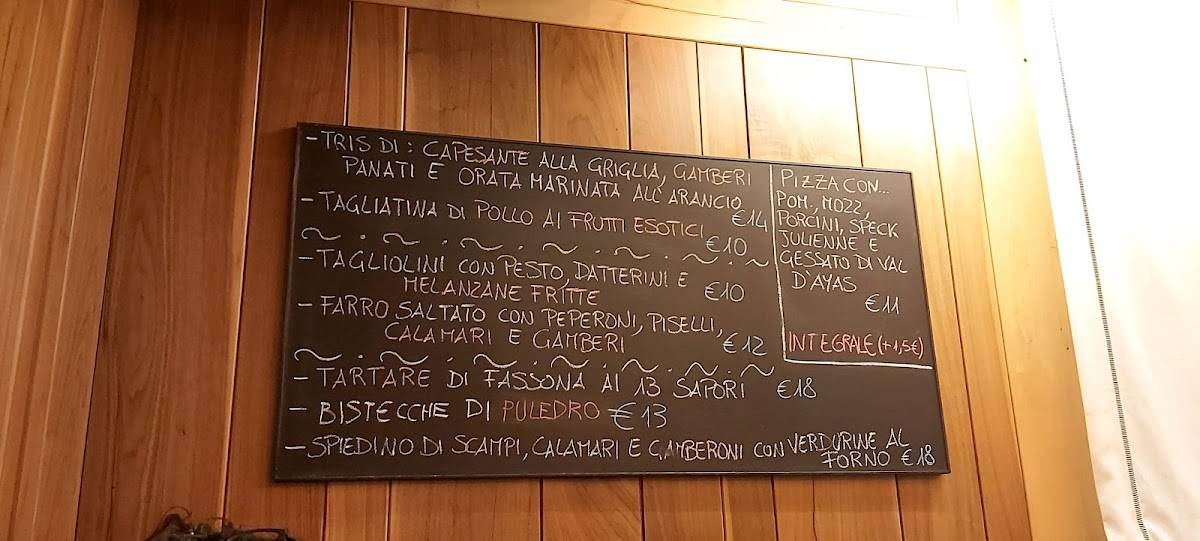 - TRIS DI: CAPESANTE ALLA GRIGLIA, GAMBERI
PANATI E ORATA MARINATA ALL'ARANCIO €14
- TAGLIATINA DI POLLO AI FRUTTI ESOTICI €10
- TAGLIOLINI CON PESTO, DATTERINI E
MELANZANE FRITTE €10
- FARRO SALTATO CON PEPERONI, PISELLI,
CALAMARI E GAMBERI €12
- TARTARE DI FASSONA AI 13 SAPORI €18
- BISTECCHE DI PULEDRO €13
- SPIEDINO DI SCAMPI, CALAMARI E GAMBERONI CON VERDURINE AL
FORNO €18
PIZZA CON...
POM., MOZZ,
PORCINI, SPECK
JULIENNE E
GESSATO DI VAL
D'AYAS
€11
INTEGRALE (+1,5€)